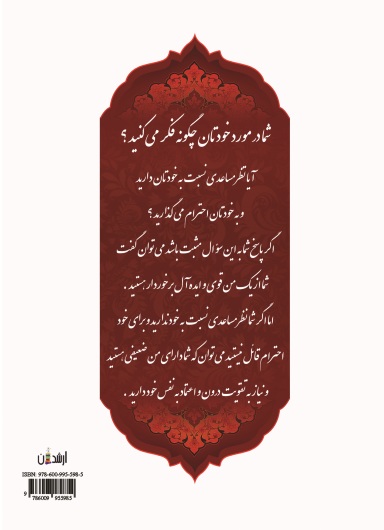 شما در مورد خودتان چگونه فکر می کنید ؟
آیا نظر مساعدی نسبت به خودتان دارید
و به خودتان احترام می گذارید ؟
اگر پاسخ شما به این سؤال مثبت باشد می توان گفت
شما از یک من قوی و ایده آل برخوردار هستید .
اما اگر شما نظر مساعدی نسبت به خود ندارید و برای خود
احترام قائل نیستید می توان که شما دارای من ضعیفی هستید
و نیاز به تقویت درون و اعتماد به نفس خود دارید .
ارشدان
ISBN: 978-600-995-598-5
9 786009 955985